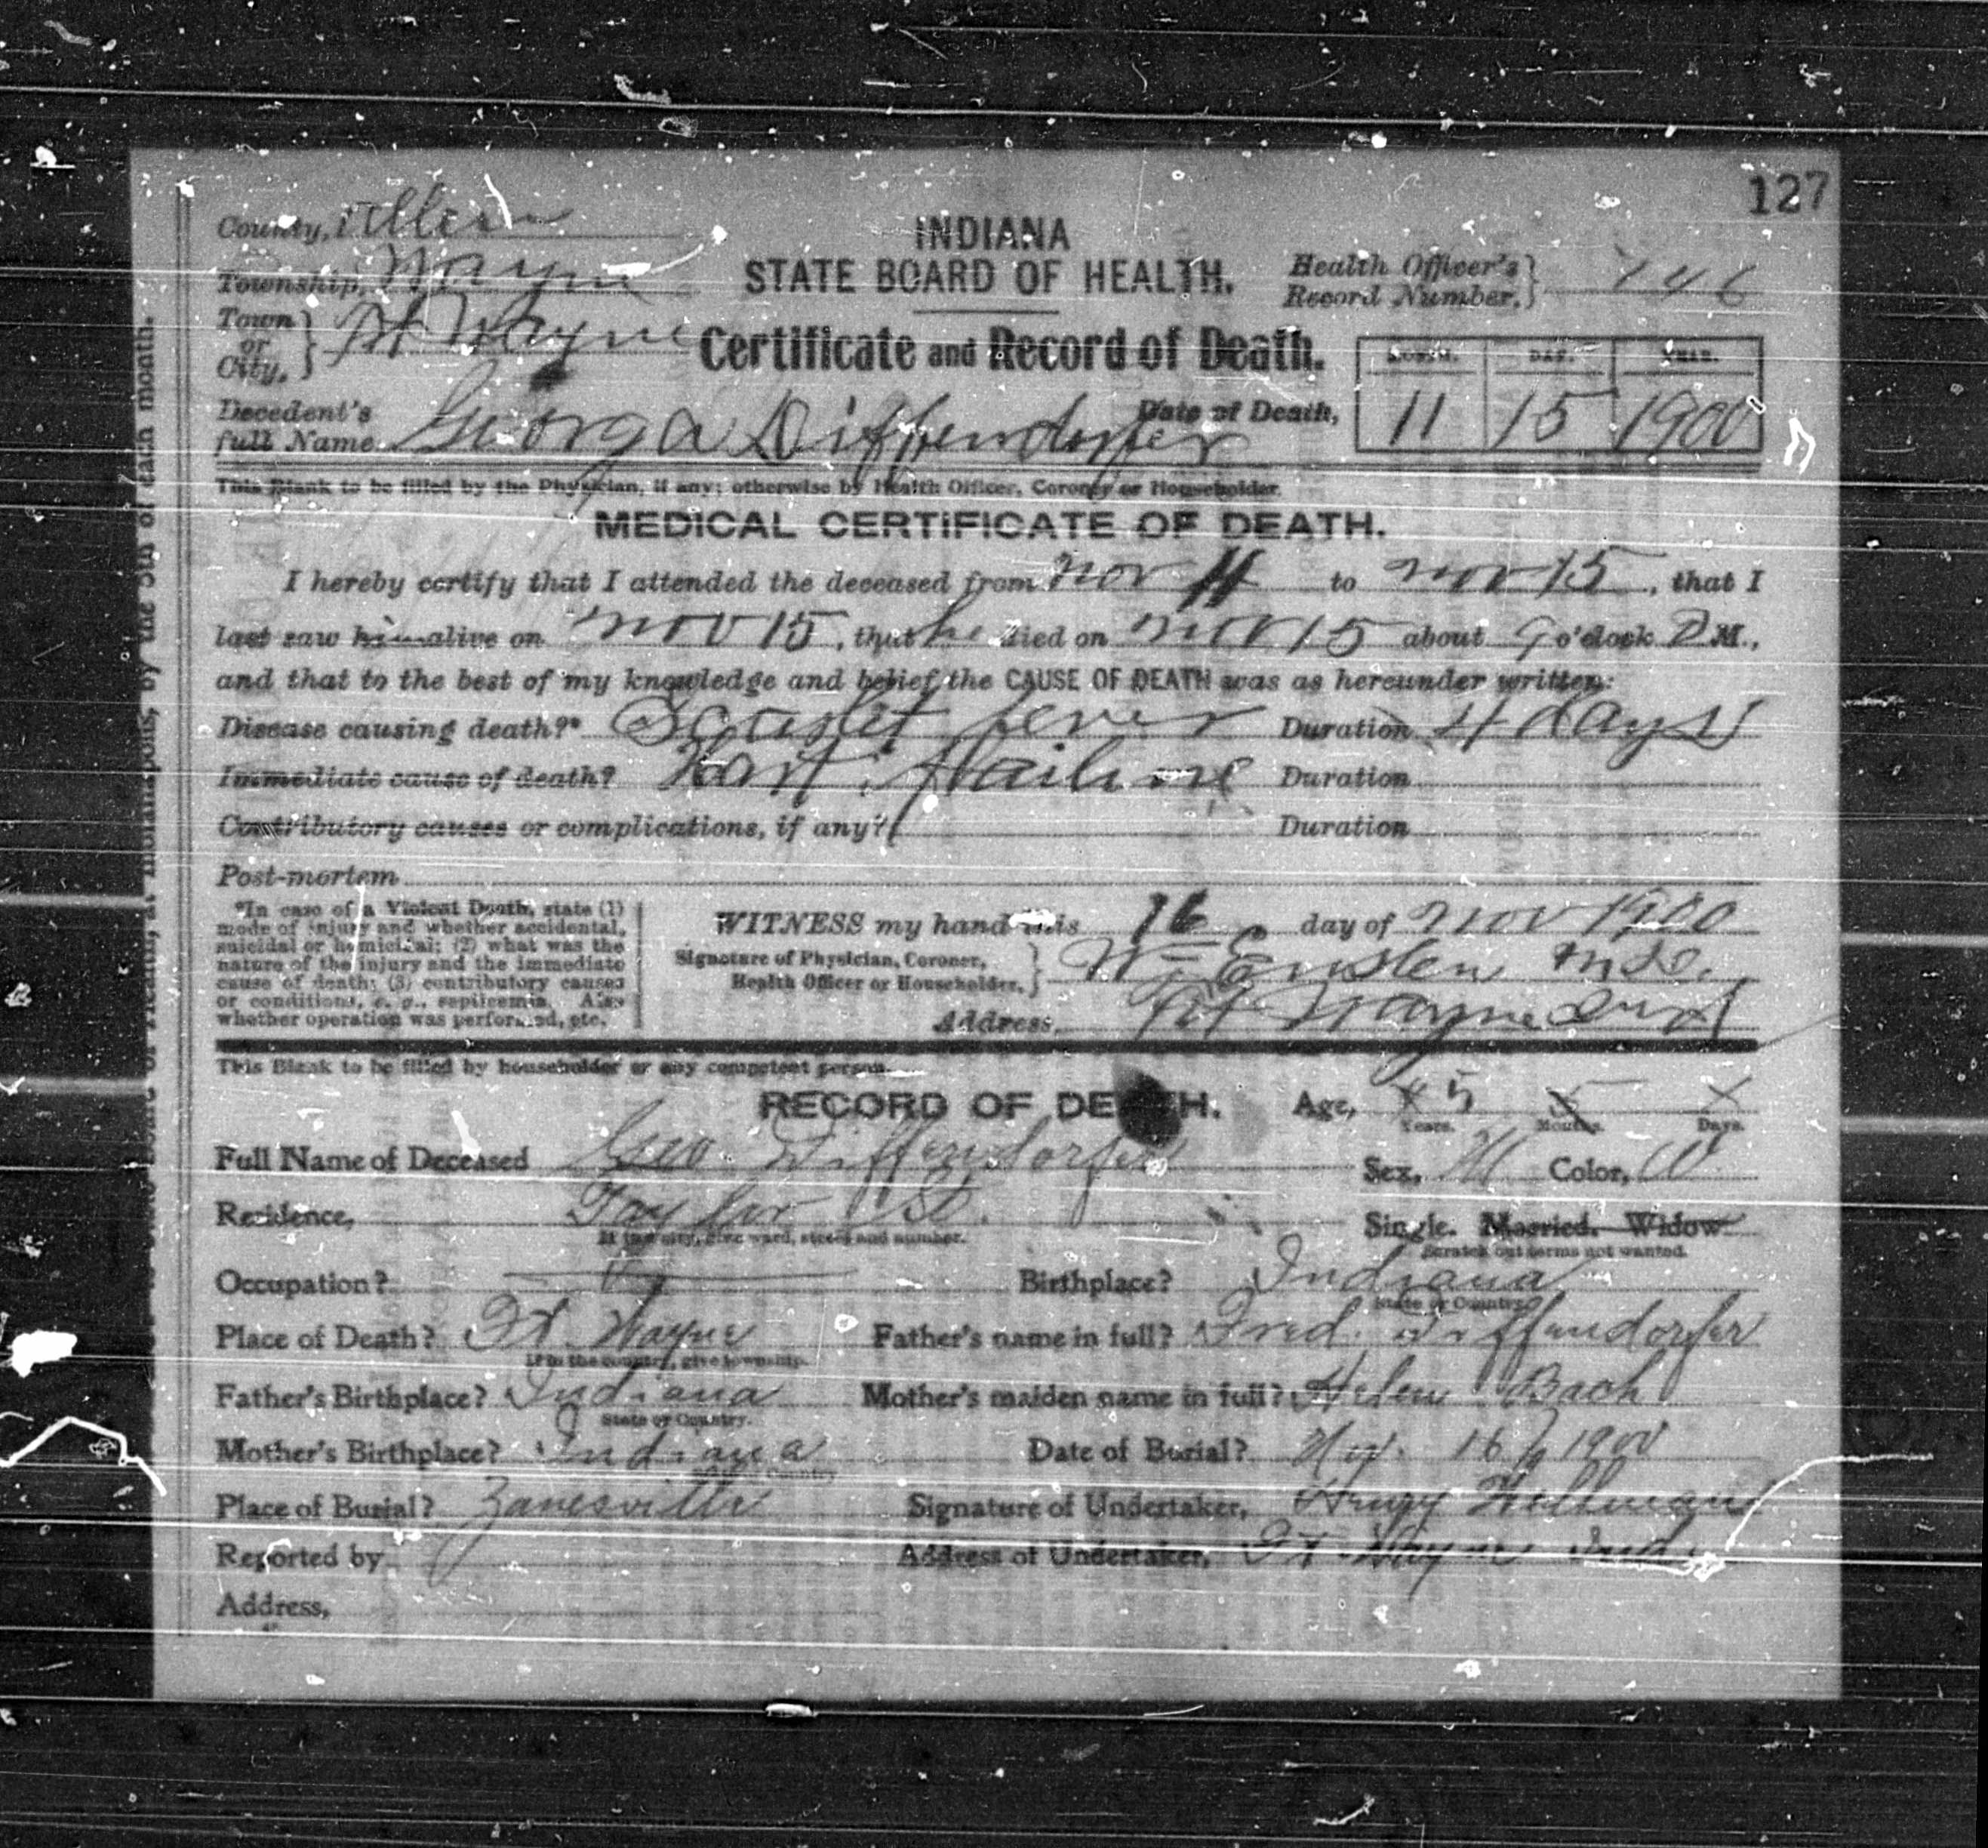 127
County, Allen
INDIANA
Township, Wayne
STATE BOARD OF HEALTH.
Health Officer's Record Number, 146
Town or City, Ft Wayne
Certificate and Record of Death.
MONTH. DAY. YEAR.
Decedent's full Name Georg a Diffendorfer Date of Death, 11 15 1900
This Blank to be filled by the Physician, if any; otherwise by Health Officer, Coroner or Householder.
MEDICAL CERTIFICATE OF DEATH.
I hereby certify that I attended the deceased from Nov 11 to Nov 15, that I
last saw him alive on Nov 15, that he died on Nov 15 about 9 o'clock P.M.,
and that to the best of my knowledge and belief the CAUSE OF DEATH was as hereunder written:
Disease causing death?* Scarlet fever Duration 4 days
Immediate cause of death? Hart Duration
Contributory causes or complications, if any? Duration
Post-mortem
*In case of a Violent Death, state (1)
mode of injury and whether accidental,
suicidal or homicidal; (2) what was the
nature of the injury and the immediate
cause of death; (3) contributory causes
or conditions, e. g., septicemia. Also
whether operation was performed, etc.
WITNESS my hand this 16 day of Nov 1900
Signature of Physician, Coroner, Health Officer or Householder, Wm M.D.
Address, Ft Wayne Ind
This Blank to be filled by householder or any competent person.
RECORD OF DEATH. Age, 5
Years. Months. Days.
Full Name of Deceased Geo. Diffendorfer Sex, M Color, W
Residence, Taylor St. Single. Married. Widow
If in a city, give ward, street and number. Scratch out terms not wanted.
Occupation? Birthplace? Indiana
State or Country.
Place of Death? Ft. Wayne Father's name in full? Fred. Diffendorfer
If in the country, give township.
Father's Birthplace? Indiana Mother's maiden name in full? Helen Bach
State or Country.
Mother's Birthplace? Indiana Date of Burial? Nov. 16 1900
Country
Place of Burial? Zanesville Signature of Undertaker, Henry
Reported by Address of Undertaker, Ft. Wayne Ind.
Address,